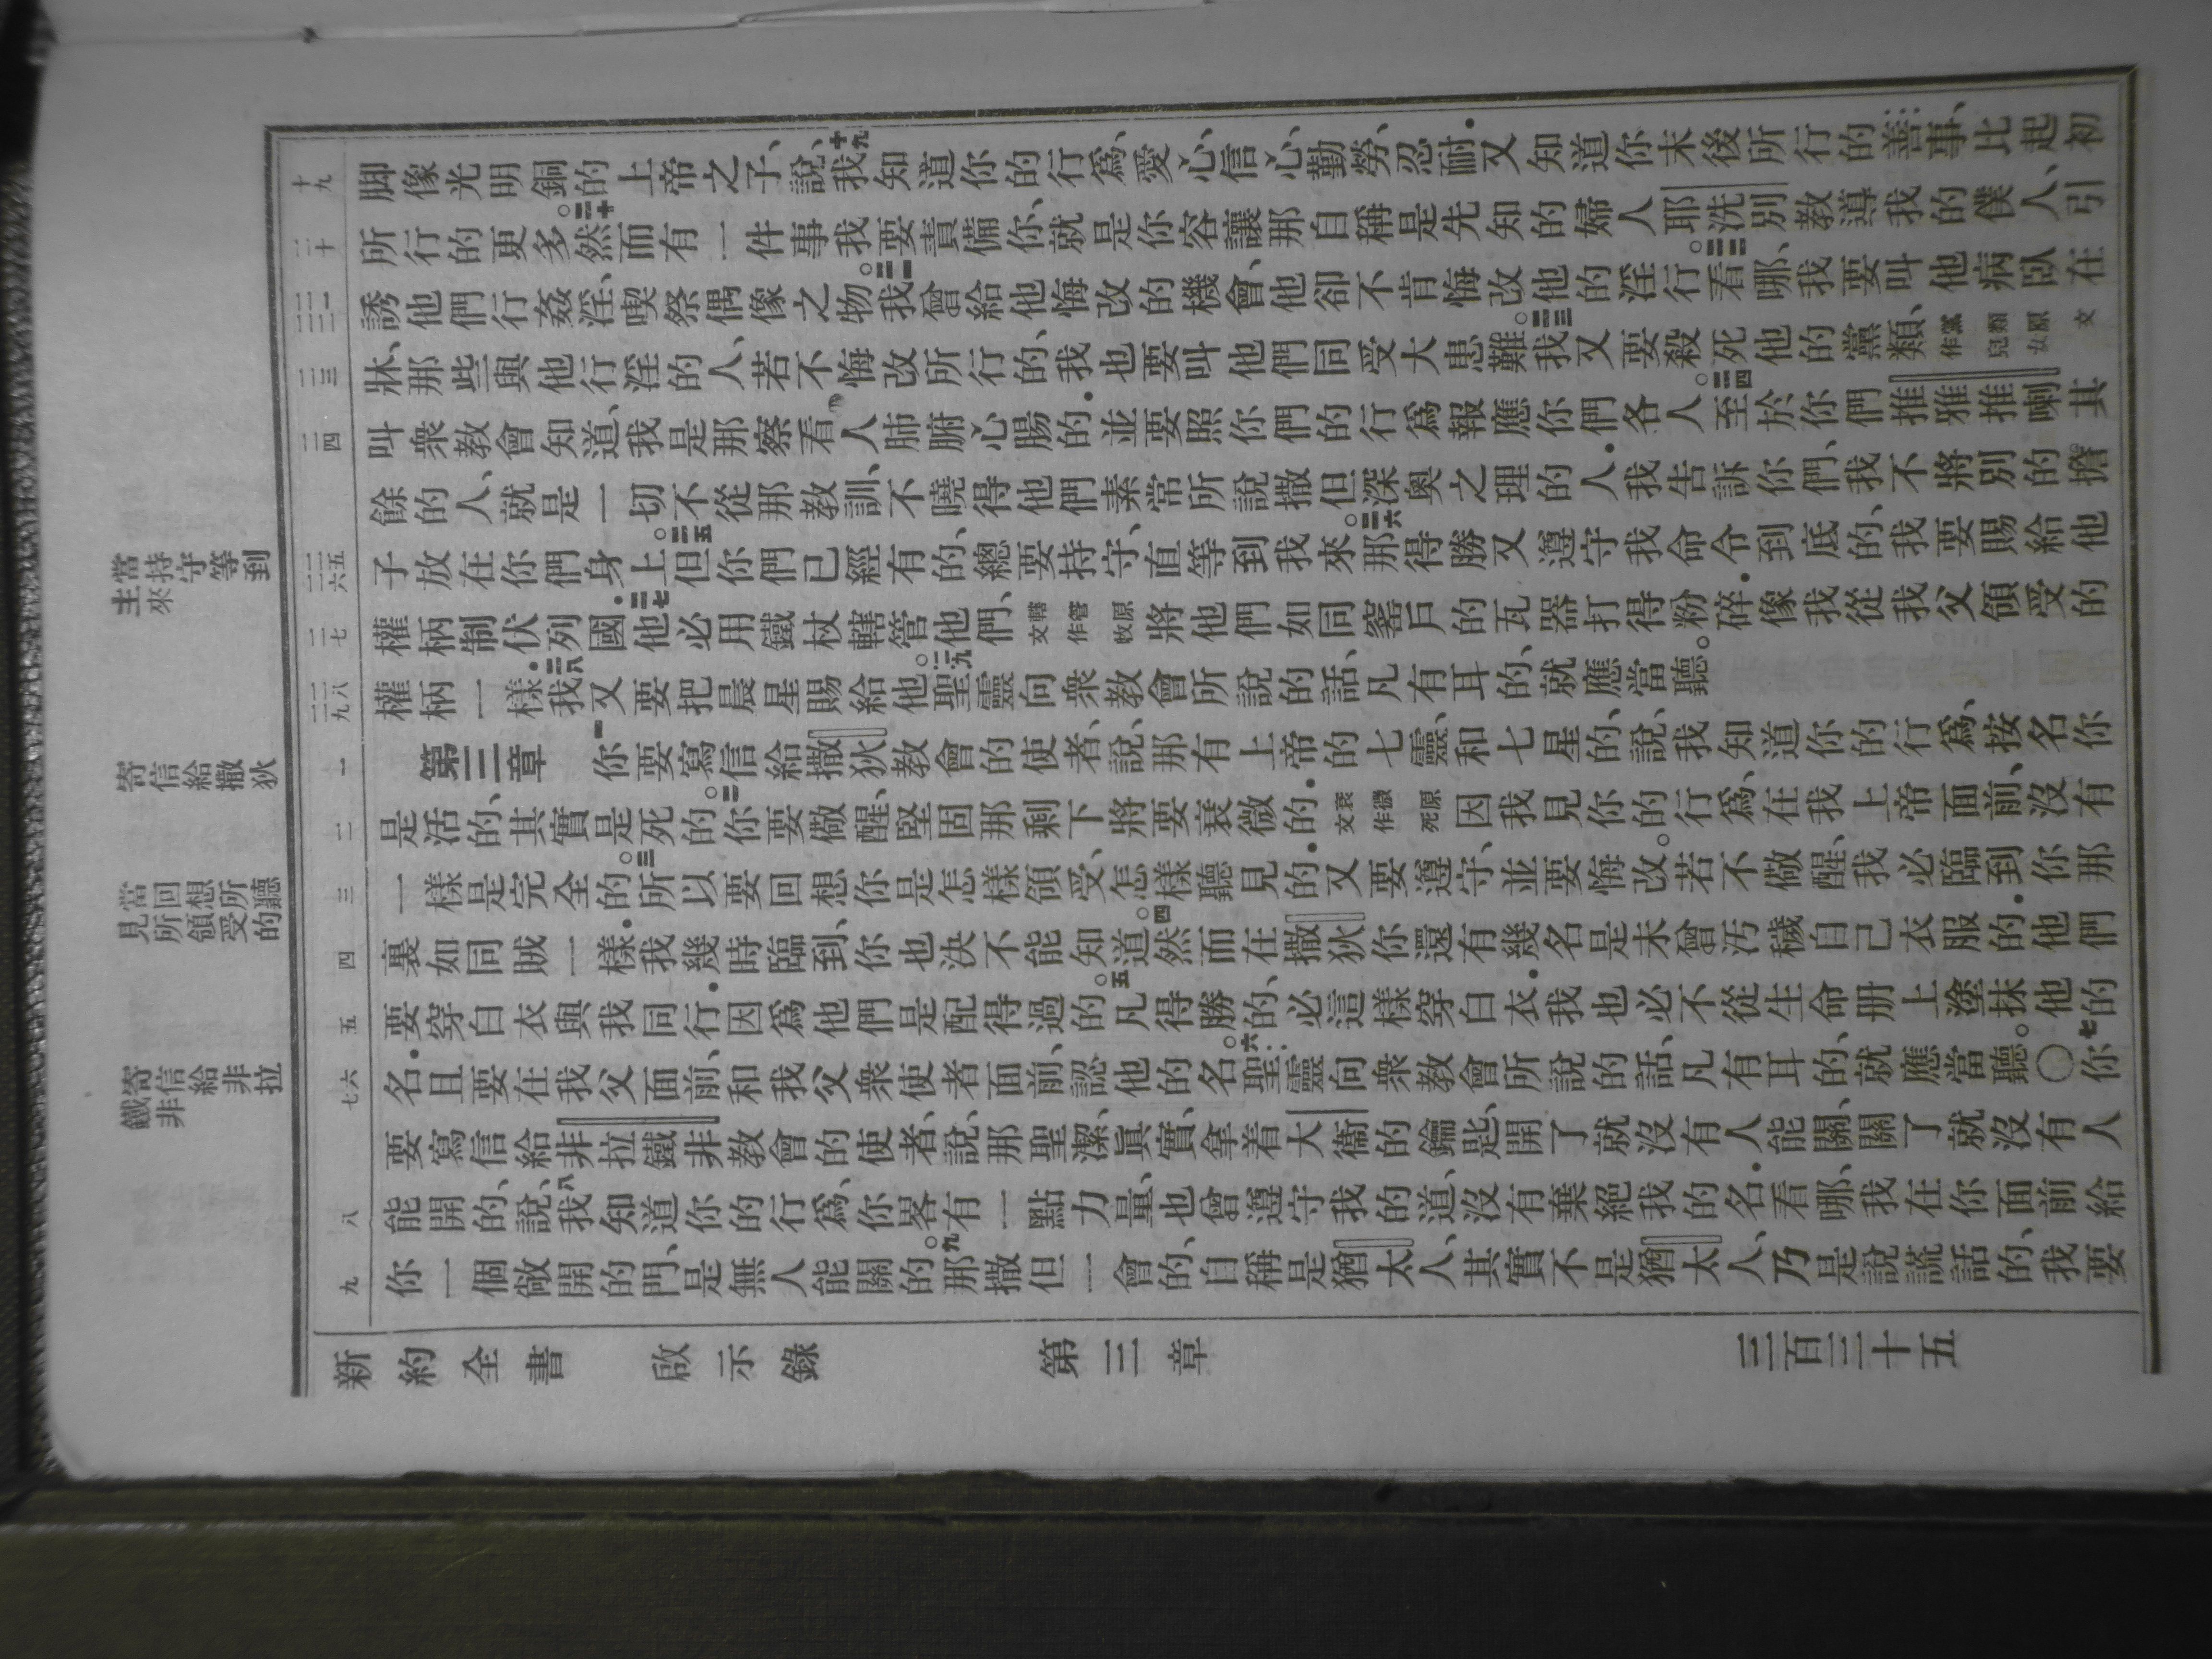 脚像光明銅的上帝之子、說、十九我知道你的行爲、愛心、信心、勤勞、忍耐．又知道你末後所行的善事、比起初
所行的更多。二十然而有一件事我要責備你、就是你容讓那自稱是先知的婦人耶洗別教導我的僕人、引
誘他們行姦淫、喫祭偶像之物。二一我曾給他悔改的機會、他卻不肯悔改他的淫行。二二看哪、我要叫他病臥在
牀、那些與他行淫的人、若不悔改所行的、我也要叫他們同受大患難。二三我又要殺死他的黨類、黨類原文作兒女
叫衆教會知道、我是那察看人肺腑心腸的．並要照你們的行爲報應你們各人。二四至於你們推雅推喇其
餘的人、就是一切不從那教訓、不曉得他們素常所說撒但深奧之理的人．我告訴你們、我不將別的擔
子放在你們身上。二五但你們已經有的、總要持守、直等到我來。二六那得勝又遵守我命令到底的、我要賜給他
權柄制伏列國．二七他必用鐵杖轄管他們、轄管原文作牧將他們如同窰戶的瓦器打得粉碎．像我從我父領受的
權柄一樣．二八我又要把晨星賜給他。二九聖靈向衆教會所說的話、凡有耳的、就應當聽。
第三章 一你要寫信給撒狄教會的使者、說、那有上帝的七靈、和七星的、說、我知道你的行爲、按名你
是活的、其實是死的。二你要儆醒、堅固那剩下將要衰微的．衰微原文作死因我見你的行爲、在我上帝面前、沒有
一樣是完全的。三所以要回想你是怎樣領受、怎樣聽見的．又要遵守、並要悔改。若不儆醒、我必臨到你那
裏如同賊一樣．我幾時臨到、你也決不能知道。四然而在撒狄你還有幾名是未曾汚穢自己衣服的．他們
要穿白衣與我同行．因爲他們是配得過的。五凡得勝的、必這樣穿白衣．我也必不從生命册上塗抹他的
名．且要在我父面前、和我父衆使者面前、認他的名。六聖靈向衆教會所說的話、凡有耳的、就應當聽。〇七你
要寫信給非拉鐵非教會的使者、說、那聖潔、眞實、拿着大衞的鑰匙、開了就沒有人能關、關了就沒有人
能開的、說、八我知道你的行爲、你畧有一點力量、也曾遵守我的道、沒有棄絕我的名．看哪、我在你面前給
你一個敞開的門、是無人能關的。九那撒但一會的、自稱是猶太人、其實不是猶太人、乃是說謊話的、我要
十九
二十
二一
二二
二三
二四
二五
二六
二七
二八
二九
一
二
三
四
五
六
七
八
九
當持守等到
主來
寄信給撒狄
當回想所聽
見所領受的
寄信給非拉
鐵非
新約全書 啟示錄 第三章 三百三十五